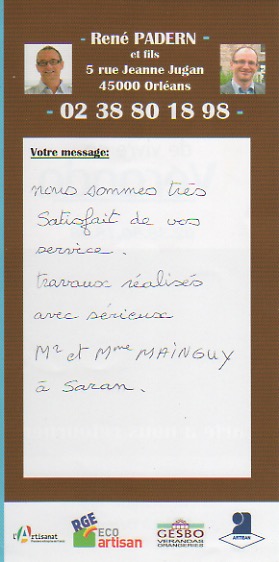 - René PADERN -
et fils
5 rue Jeanne Jugan
45000 Orléans
- 02 38 80 18 98 -
Votre message:
nous sommes très
satisfait de vos
service.
travaux réalisés
avec sérieux
Mr et Mme MAINGUY
à Saran.
l'Artisanat
RGE
ECO
artisan
GESBO
VERANDAS
ORANGERIES
ARTISAN